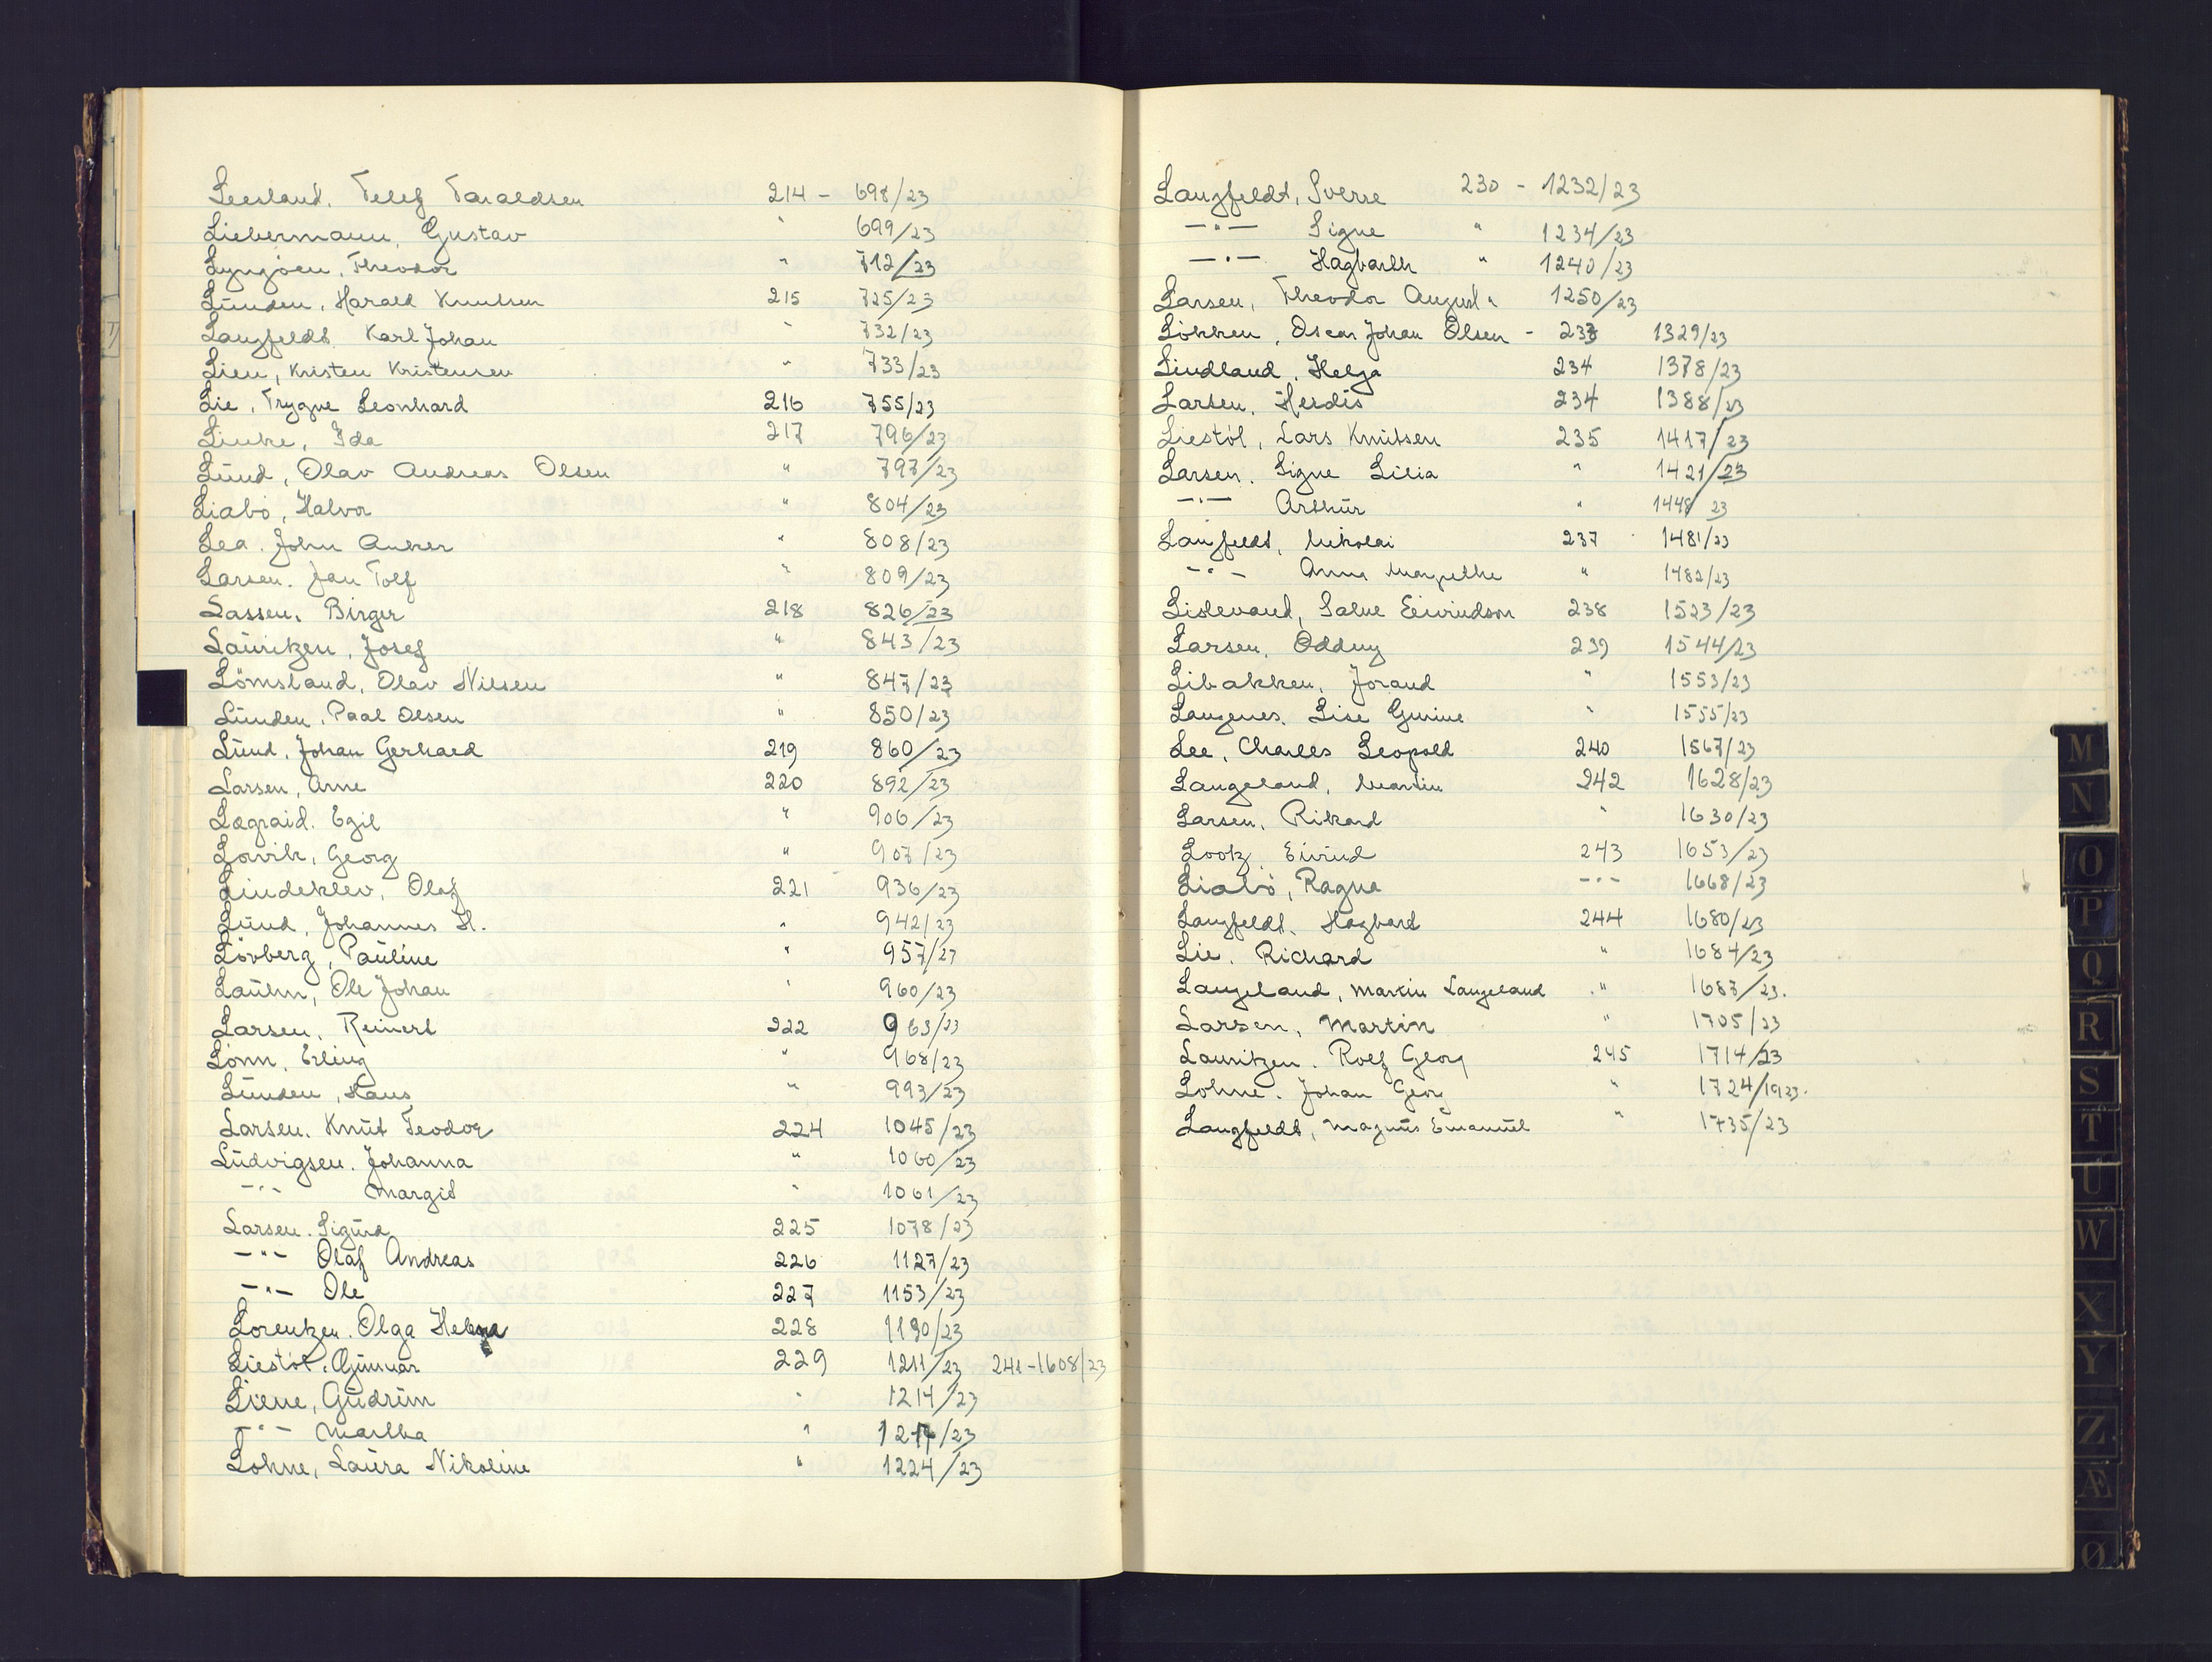 Leesland, Telef Taraldsen 214 - 698/23
Liebermann, Gustav " 699/23
Lyngjoen, Theodor " 712/23
Lunden, Harald Knutsen 215 725/23
Langfeldt, Karl Johan " 732/23
Lien, Kristen Kristensen " 733/23
Lie, Trygve Leonhard 216 755/23
Linke, Ida 217 796/23
Lund, Olav Andreas Olsen " 797/23
Liabö, Halvor " 804/23
Lea, John Anker " 808/23
Larsen, Jan Tolf " 809/23
Lassen, Birger 218 826/23
Lauritzen, Josef " 843/23
Lömsland, Olav Nilsen " 847/23
Lunden, Paal Olsen " 850/23
Lund, Johan Gerhard 219 860/23
Larsen, Arne 220 892/23
Lægraid, Egil " 906/23
Lovik, Georg " 907/23
Lindeklev, Olaf 221 936/23
Lund, Johannes H. " 942/23
Lövberg, Pauline " 957/23
Lauhn, Ole Johan " 960/23
Larsen, Reinert 222 963/23
Lönn, Erling " 968/23
Lunden, Hans " 993/23
Larsen, Knut Teodor 224 1045/23
Ludvigsen, Johanna " 1060/23
-"- Margit " 1061/23
Larsen, Sigurd 225 1078/23
-"- Olaf Andreas 226 1127/23
-"- Ole 227 1153/23
Lorentzen, Olga Helena 228 1190/23
Liestöl, Gunnar 229 1211/23 241-1608/23
Liene, Gudrun " 1214/23
-"- Martha " 1217/23
Lohne, Laura Nikoline " 1224/23
Langfeldt, Sverre 230 - 1232/23
-"- Signe " 1234/23
-"- Hagbarth " 1240/23
Larsen, Theodor August " 1250/23
Lökken, Oscar Johan Olsen - 233 1329/23
Lindland, Helga 234 1378/23
Larsen, Herdis 234 1388/23
Liestöl, Lars Knutsen 235 1417/23
Larsen, Signe Lilia " 1421/23
-"- Arthur " 1448/23
Langfeldt, Nikolai 237 1481/23
-"- Anna Margrethe " 1482/23
Listevand, Salve Eivindson 238 1523/23
Larsen, Oddny 239 1544/23
Libakken, Jorand " 1553/23
Langenes, Lise Gurine " 1555/23
Lee, Charles Leopold 240 1567/23
Langeland, Martin 242 1628/23
Larsen, Rikard " 1630/23
Lootz, Eivind 243 1653/23
Liabö, Ragna -"- 1668/23
Langfeldt, Hagbard 244 1680/23
Lie, Richard " 1684/23
Langeland, Martin Langeland " 1687/23.
Larsen, Martin " 1705/23
Lauritzen, Rolf Georg 245 1714/23
Lohne, Johan Georg " 1724/1923.
Langfeldt, Magnus Emanuel " 1735/23
M
N
O
P
Q
R
S
T
U
W
X
Y
Z
Æ
Ø